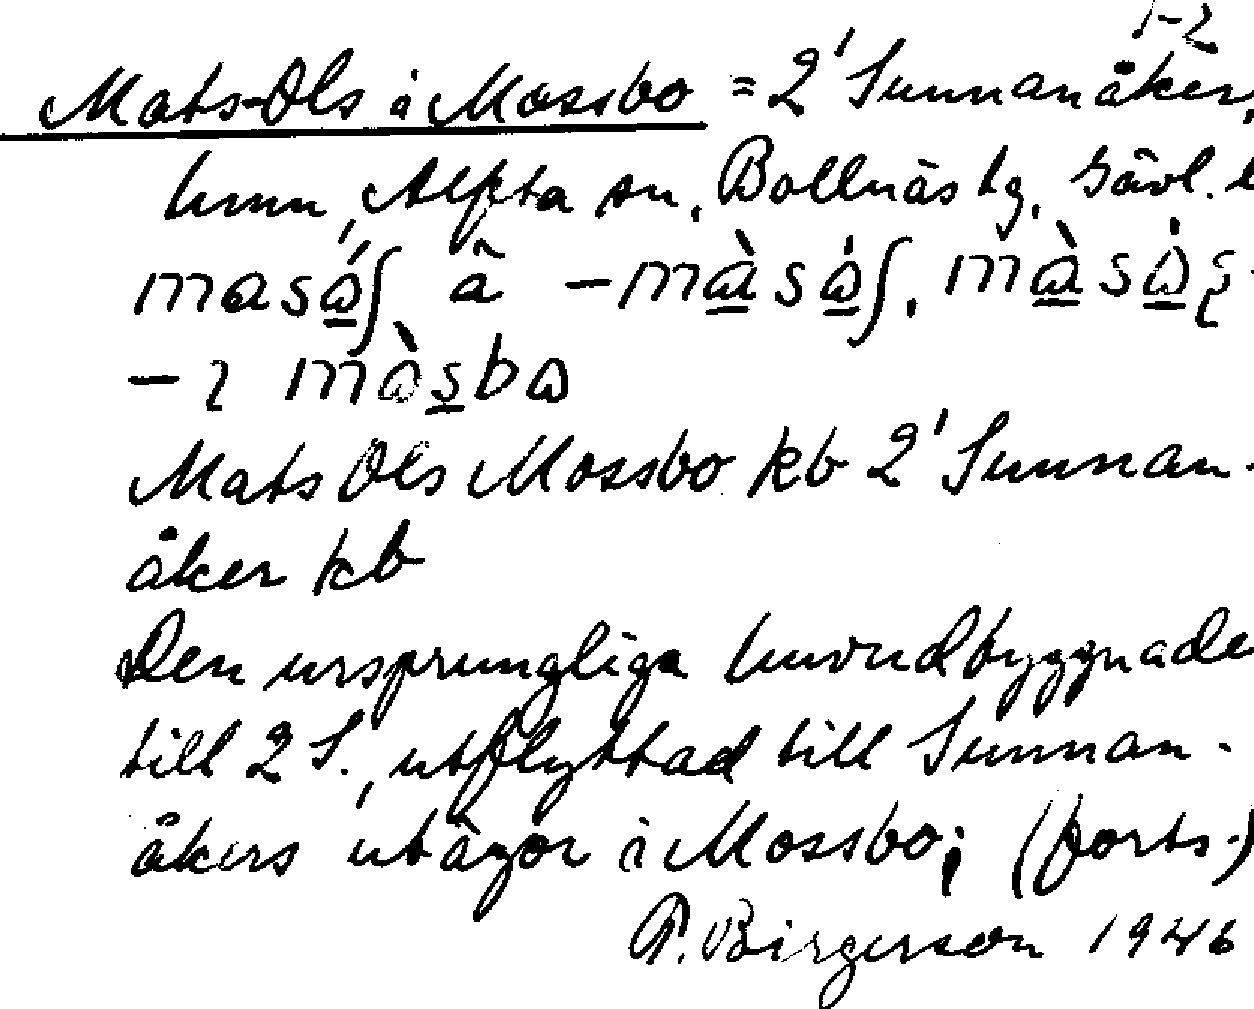 1-2
Mats-Ols i Mossbo = 2' Sunnanåker,
hmn, Alfta sn, Bollnäs tg, Gävl. l
Mats Ols Mossbo kb 2' Sunnan-
åker kb
Den ursprungliga huvudbyggnade
till 2 S., utflyttad till Sunnan-
åkers utägor i Mossbo; (forts.)
P. Birgerson 1946